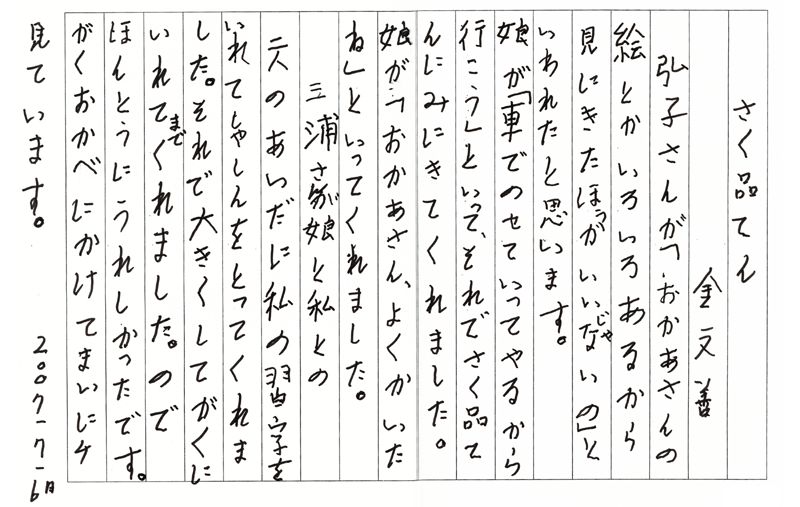 さく品てん
金文善
弘子さんが「おかあさんの
絵とかいろいろあるから
見にきたほうがいいじゃないの」と
いわれたと思います。
娘が「車でのせていってやるから
行こう」といって、それでさく品て
んにみにきてくれました。
娘が「おかあさん、よくかいた
ね」といってくれました。
三浦さんが娘と私との
二人のあいだに私の習字を
いれてしゃしんをとってくれま
した。それで大きくしてがくに
いれてまでくれました。ので
ほんとうにうれしかったです。
がくおかべにかけてまいにち
見ています。
2007-7-6日